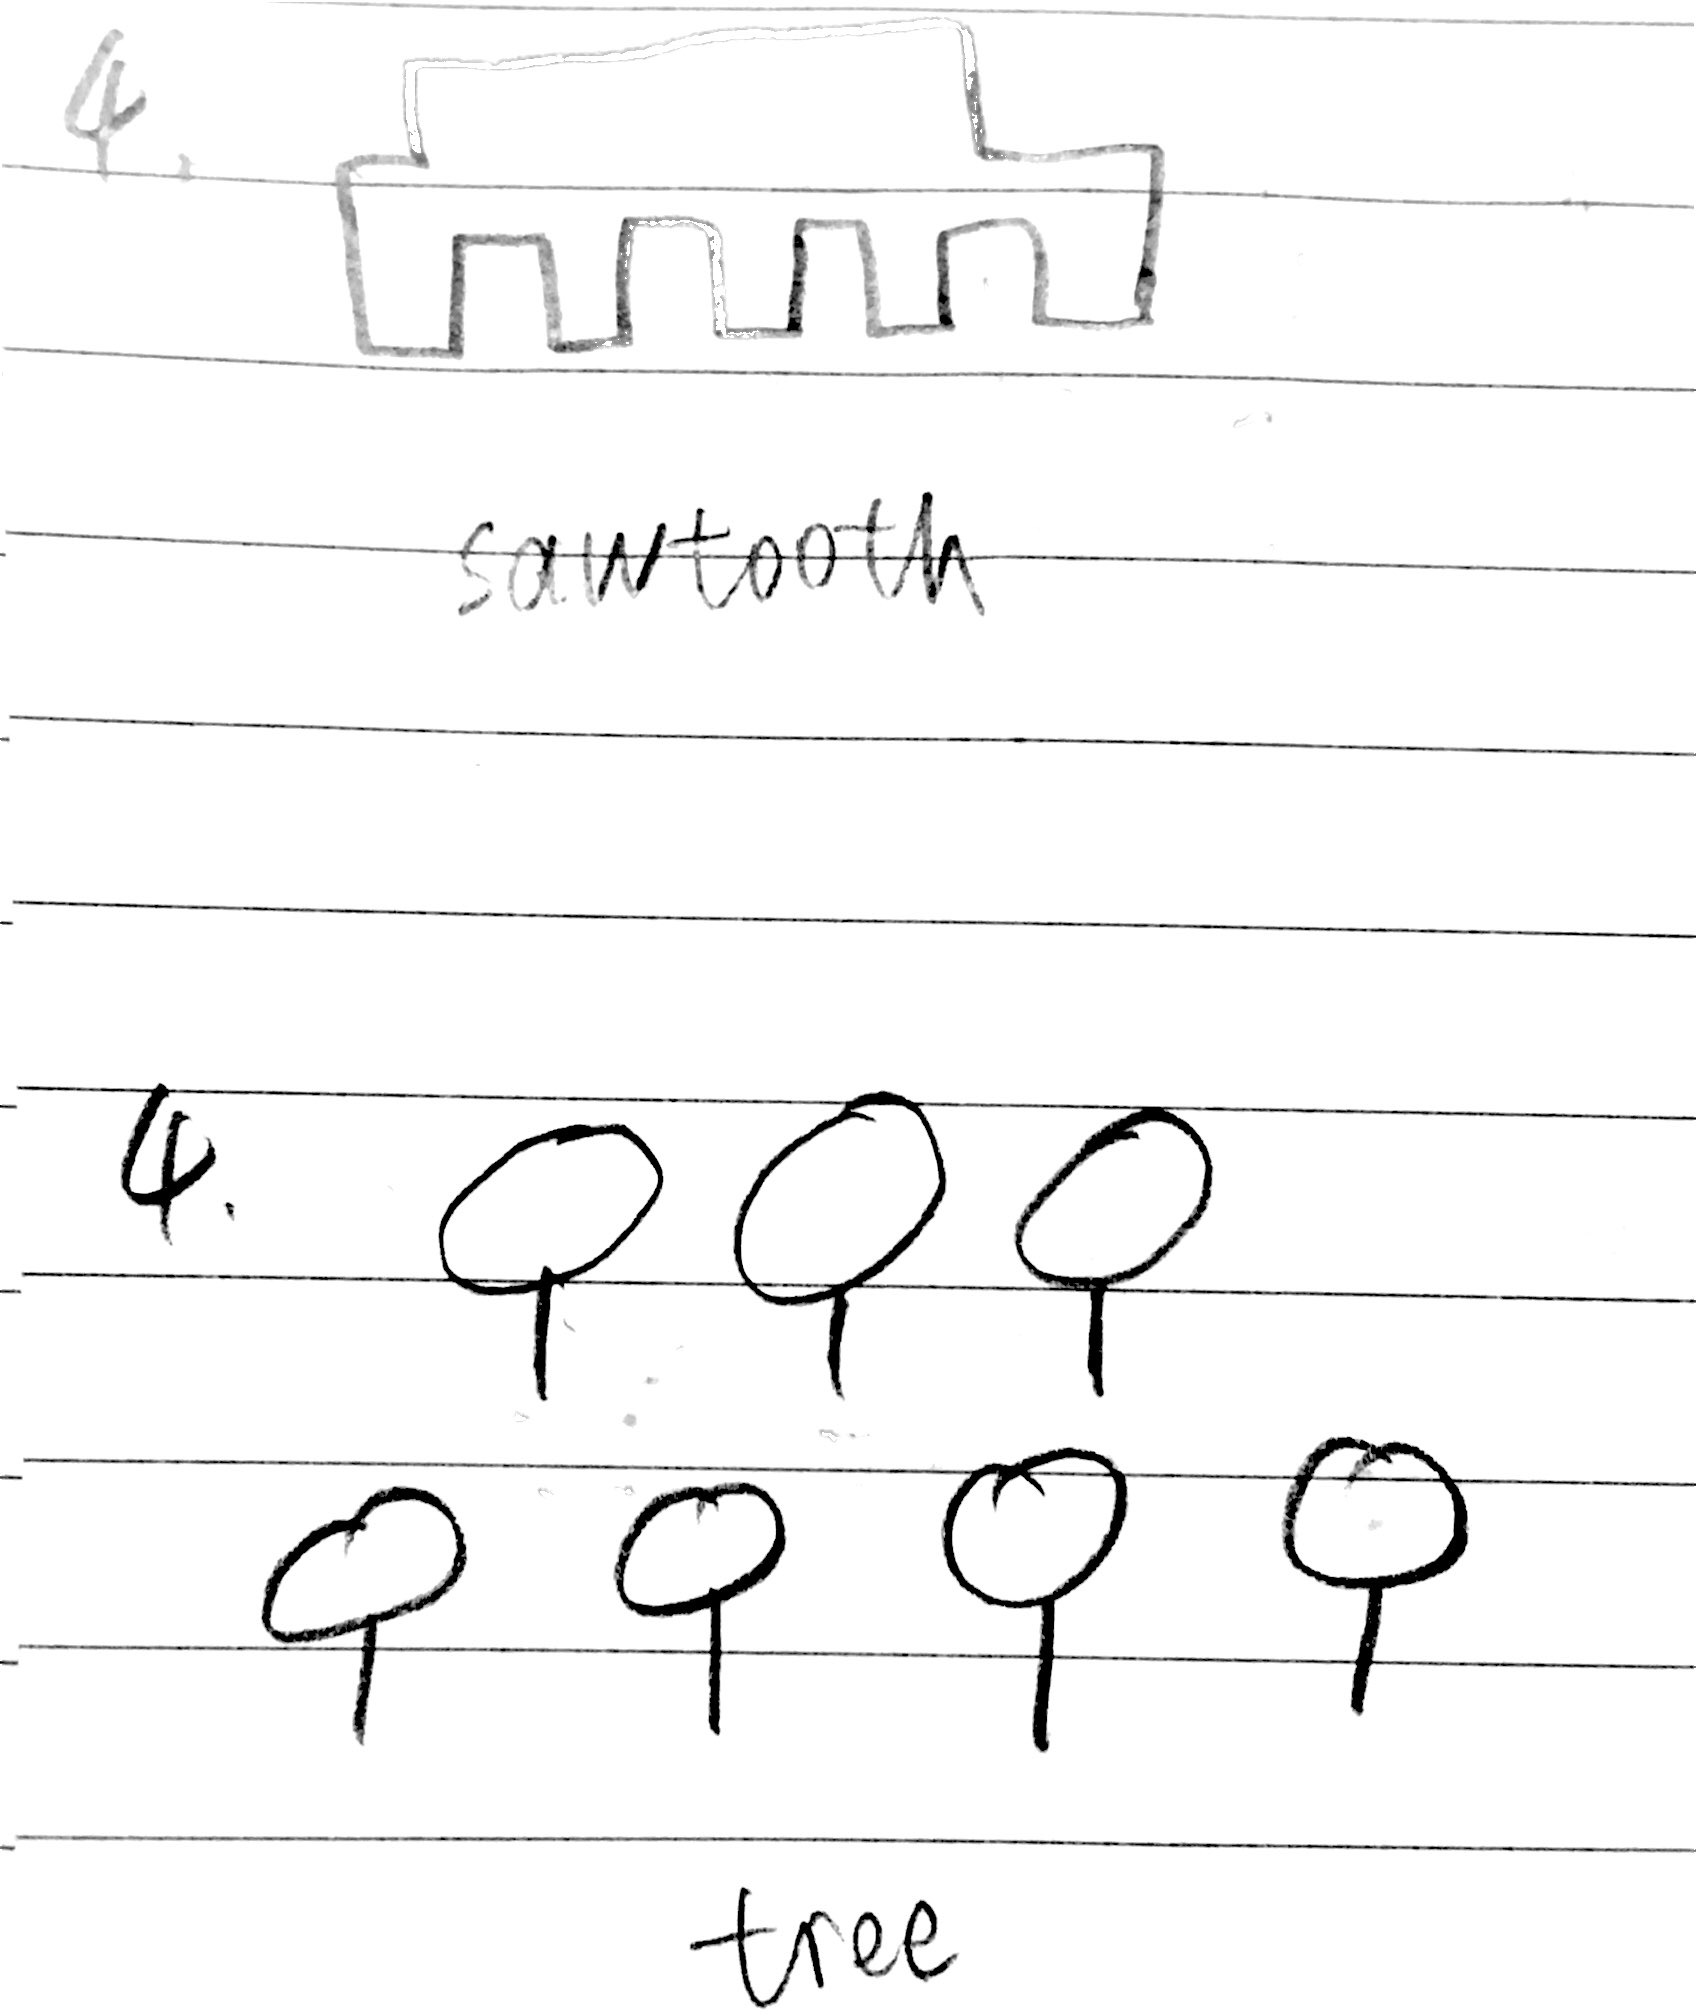 4.
sawtooth
4.
tree